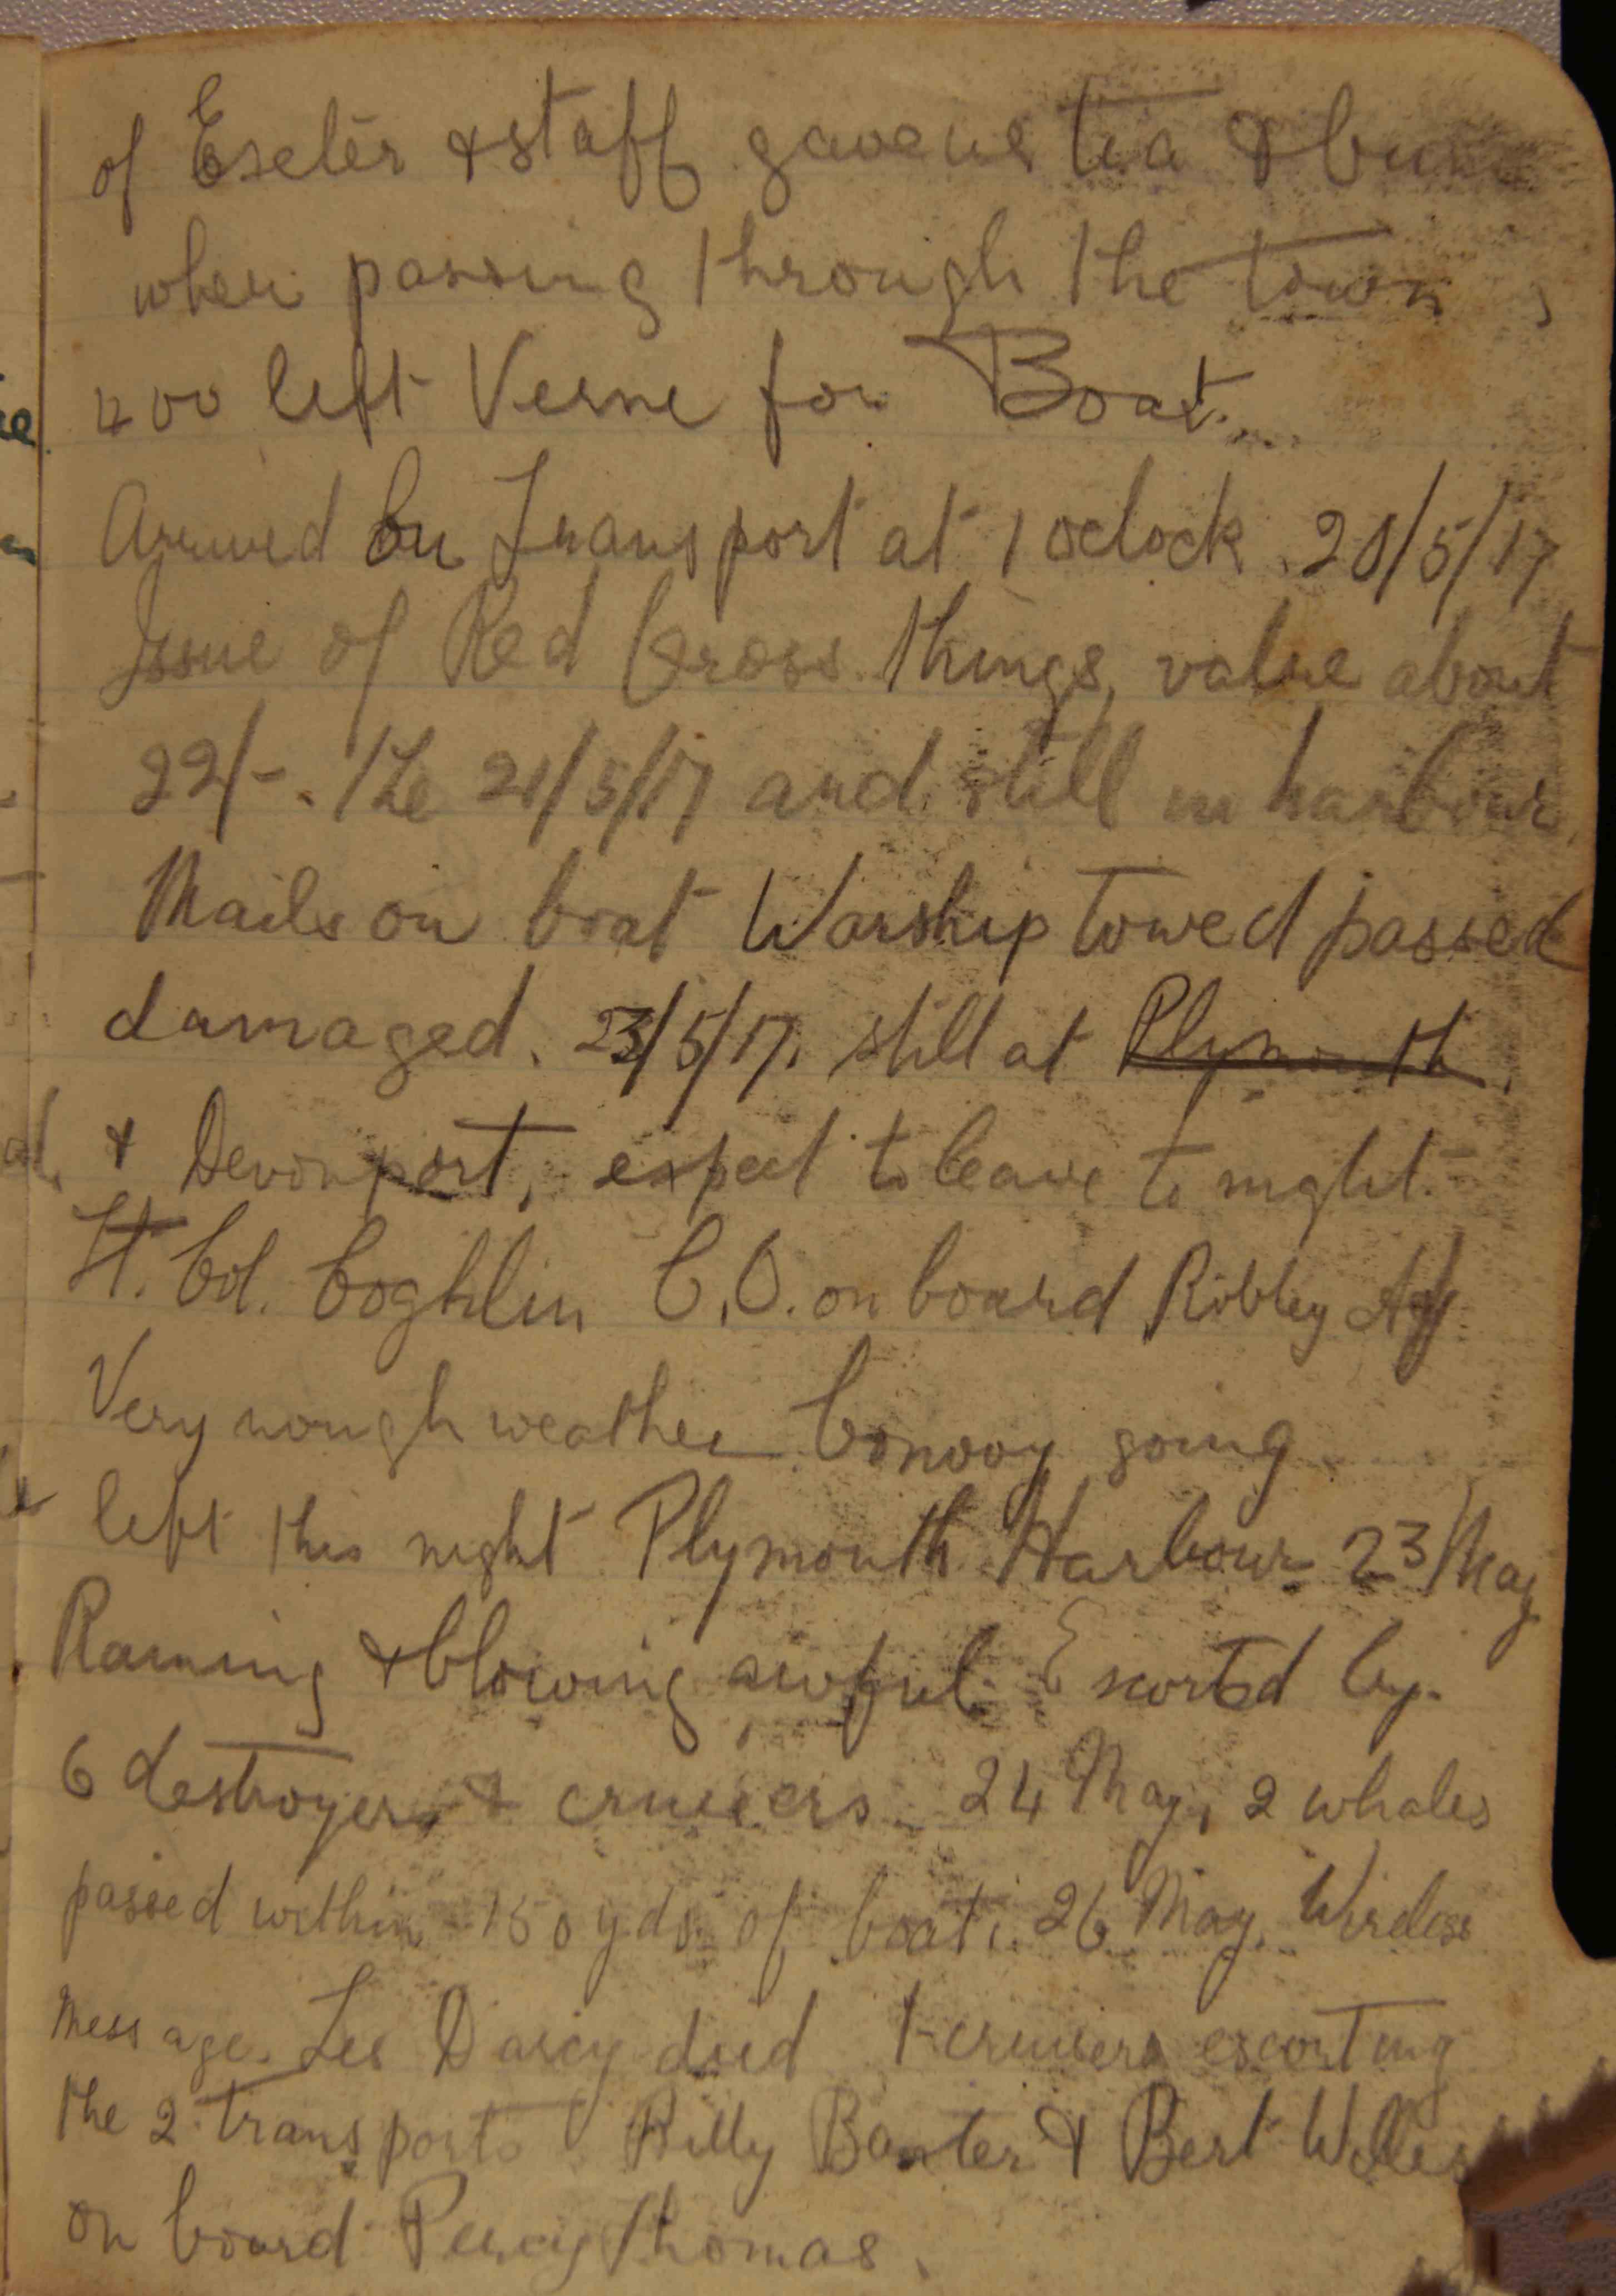 of Exeter & staff gave us tea & buns
when passing through the town,
400 left Verne for Boat.
Arrived on Transport at 1 oclock 20/5/17
Issue of Red Cross things, value about
22/-. The 21/5/17 and still in harbour
Mails on boat Warship towed passed
damaged. 23/5/17. still at Plymouth.
& Devonport, expect to leave to night.
Lt. Col. Coghlin C.O. on board Ribley Adj
Very rough weather Convoy going
left this night Plymouth Harbour 23 May
Raining & blowing awful Escorted by.
6 destroyers & cruiers 24 May, 2 whales
passed within 150 yds of boat. 26 May. Wireless
message. Les Darcy died 1 cruisers escorting
the 2 transports Billy Baxter & Bert
on board Percy Thomas.